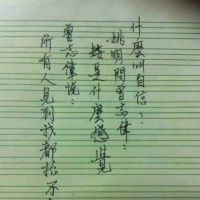 什麼叫自信？：
姚明問曾志偉：
矮是什麼感覺
曾志偉說：
所有人見到我都抬不